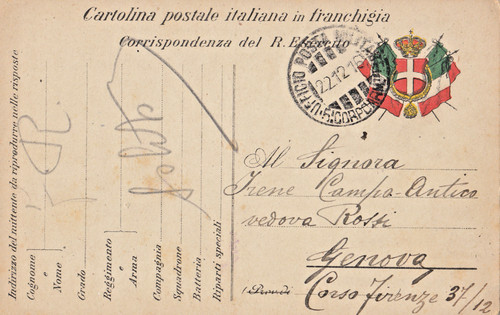 Cartolina postale italiana in franchigia
Corrispondenza del R. Esercito
UFFICIO POSTA MILITARE
22.12.16
Al Signora
Irene Campa-Antica
vedova Rossi
Genova
Corso Firenze 37/12
Indirizzo del mittente da riprodurre nelle risposte
Cognome
Nome
Grado
Reggimento
Arma
Compagnia
Squadrone
Batteria
Riparti speciali